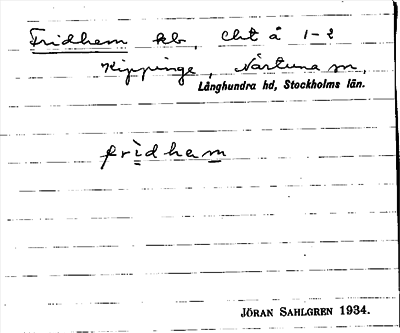 Fridhem kb, cht å 1-2
Kippinge, Närtuna sn,
Långhundra hd, Stockholms län.
frìdhem
JÖRAN SAHLGREN 1934.